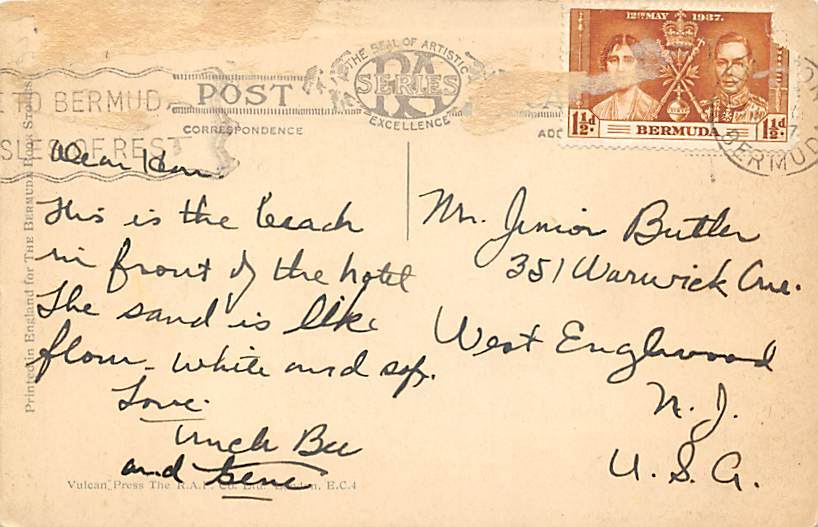 12TH MAY 1937.
THE SEAL OF ARTISTIC
POST
RA
SERIES
CORRESPONDENCE
EXCELLENCE
ADD
1½d.
BERMUDA
1½d.
TO BERMUD
ISLES OF REST
BERMUD
Dear
This is the beach
in front of the hotel
The sand is like
flour - white and sof.
Love.
Uncle Bee
and Gene
Mr. Junior Butler
351 Warwick Ave.
West Englewood
N. J.
U. S. A.
Printed in England for THE BERMUDA BOOK STORE.
Vulcan Press The R.A.P. Co. Ltd. London, E.C.4